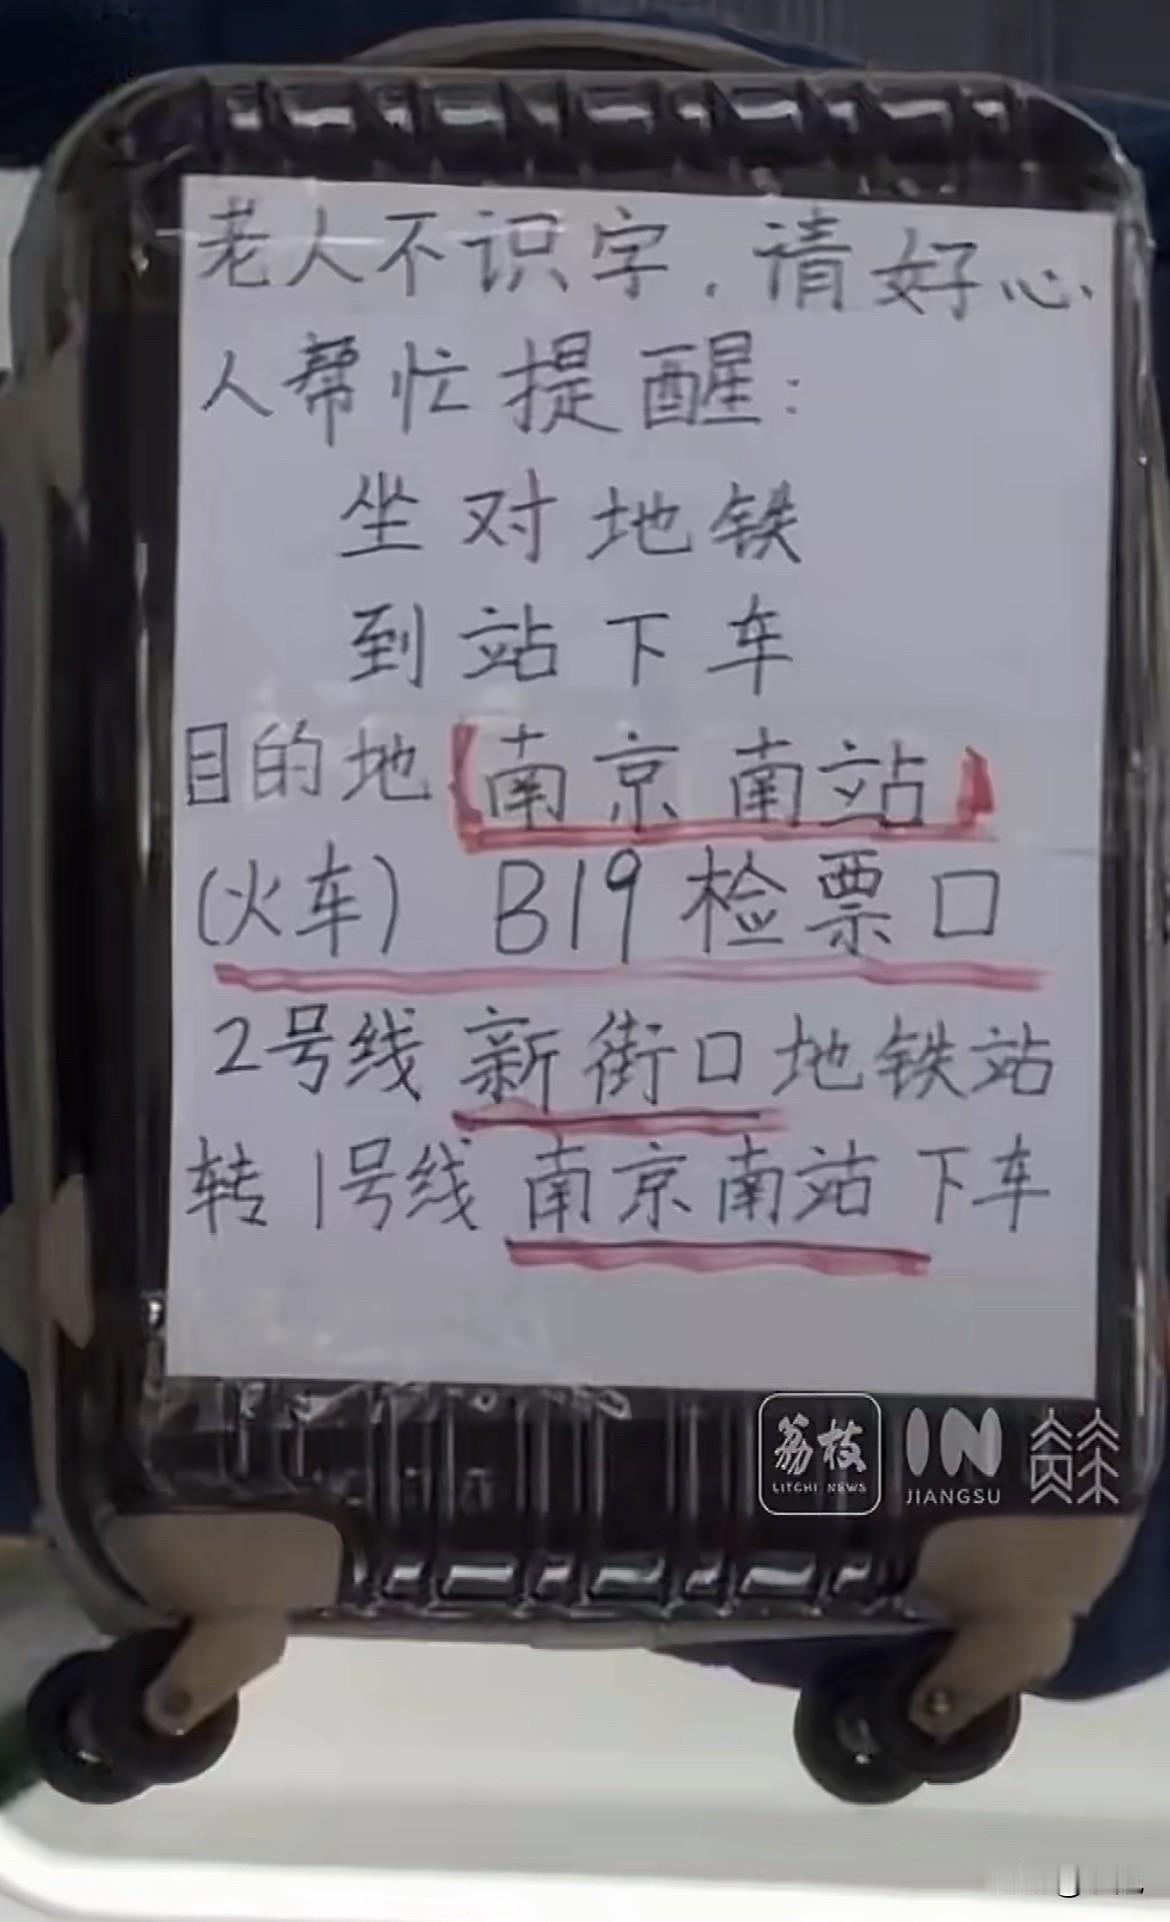 老人不识字，请好心
人帮忙提醒：
坐对地铁
到站下车
目的地【南京南站】
(火车) B19检票口
2号线 新街口地铁站
转1号线 南京南站下车
荔枝
LITCHI NEWS
IN
JIANGSU